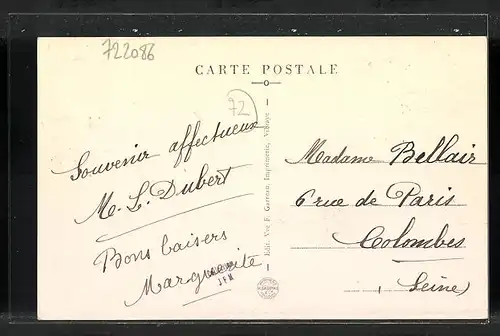 722086
CARTE POSTALE
72
Souvenir affectueux
M. L. Dubert
Bons baisers
Marguerite
JFM
Edit. Vve F. Imprimerie,
Madame Bellair
6 rue de Paris
Colombes
(Seine)